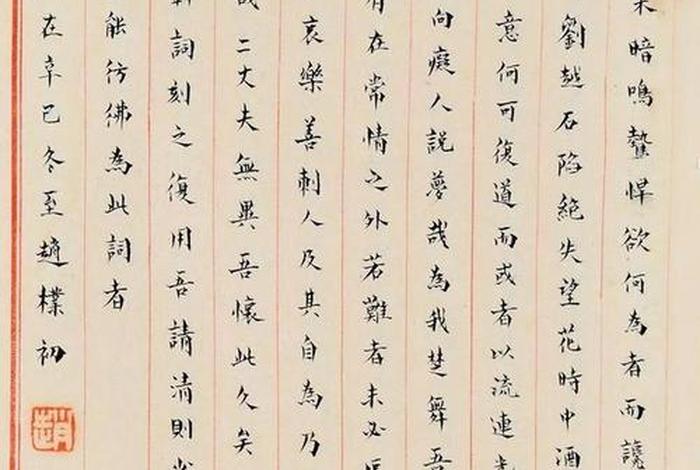 暗鳴鷙悍欲何為者而讒
劉越石陷絶失望花時中酒
意何可復道而或者以流連光
向癡人說夢哉為我楚舞吾
有在常情之外若難者未必
哀樂善刺人及其自為乃
哉二丈夫無異吾懷此久矣
詞刻之復用吾請清則當
能彷彿為此詞者
在辛巳冬至趙樸初
趙